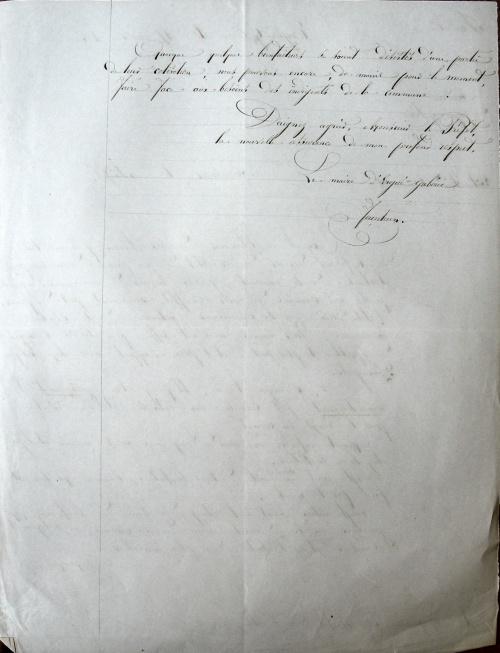 Quoique quelques bienfaiteurs se soient désistés d'une partie
de leur cotisation, nous pouvons encore, du moins pour le moment,
faire face aux besoins des indigents de la commune.
Daignez agréer, Monsieur le Préfet,
la nouvelle assurance de mon profond respect.
Le maire d'Ergué-Gabéric